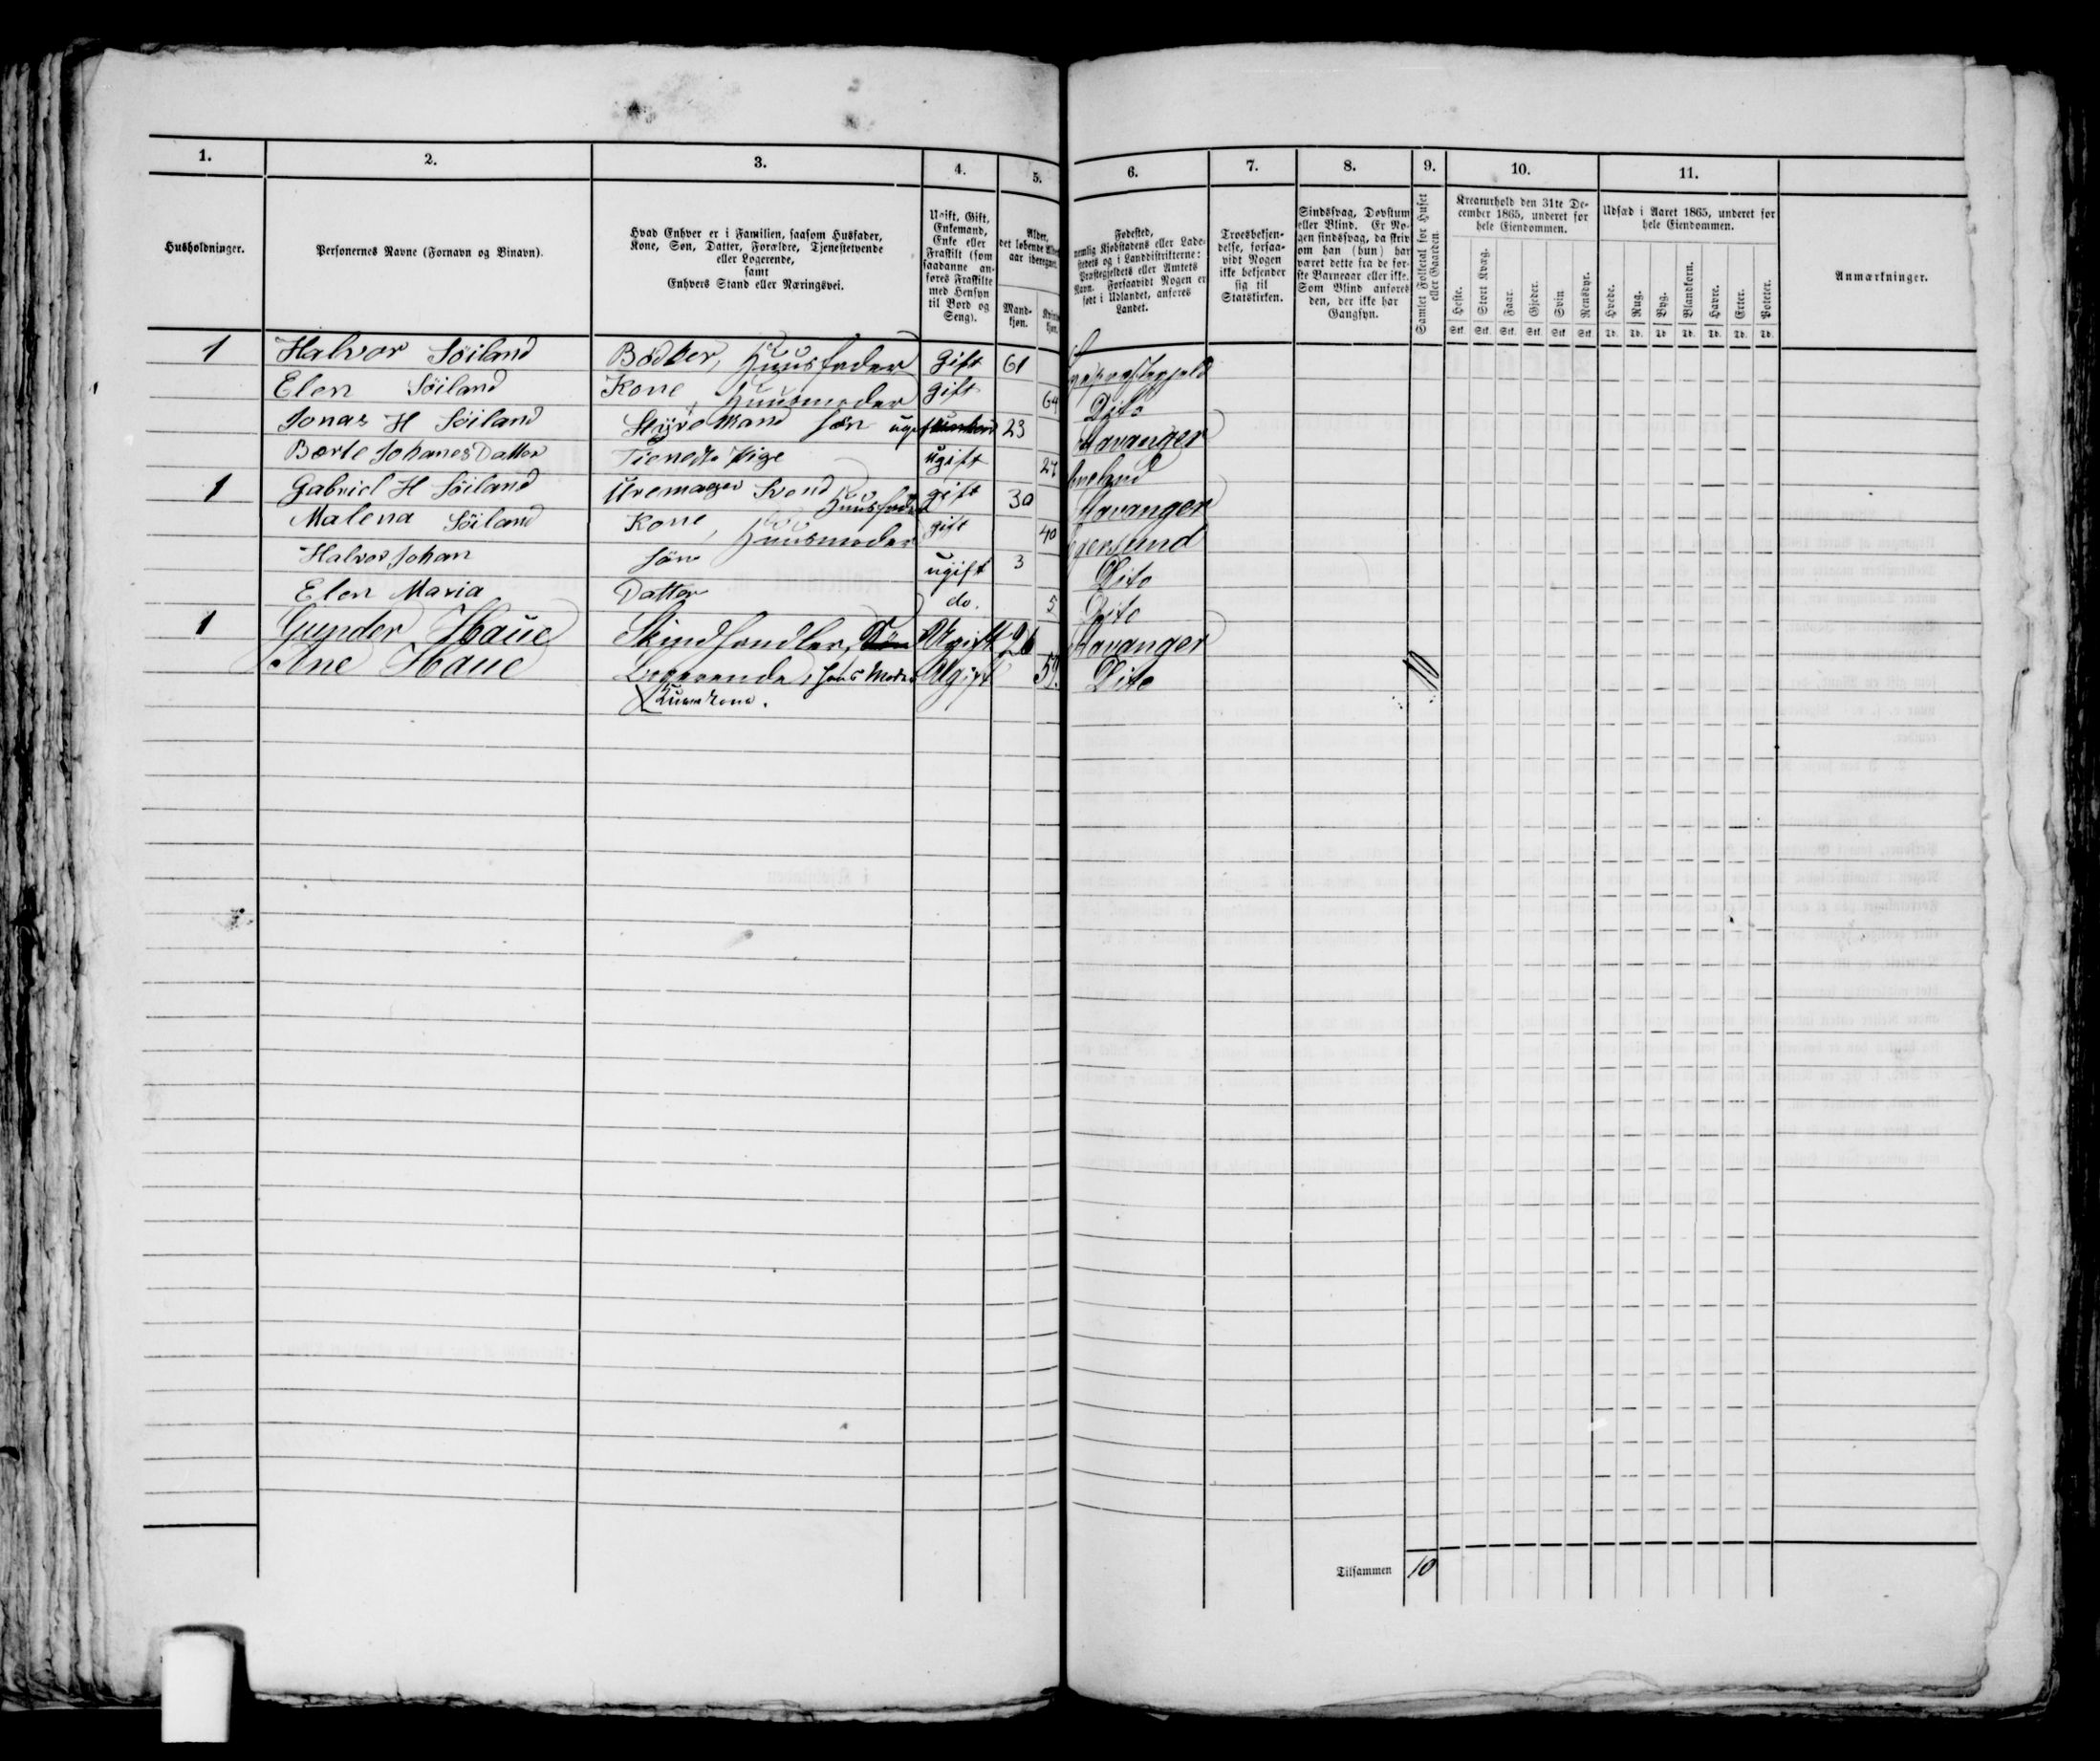 1. 2. 3. 4. 5. 6. 7. 8. 9. 10. 11.
Husholdninger.
Personernes Navne (Fornavn og Binavn).
Hvad Enhver er i Familien, saasom Husfader,
Kone, Søn, Datter, Forældre, Tjenestetyende
eller Logerende,
samt
Enhvers Stand eller Næringsvei.
Ugift, Gift,
Enkemand,
Enke eller
Fraskilt (som
saadanne an-
føres Fraskilte
med Hensyn
til Bord og
Seng).
Alder,
det løbende
aar iberegnet
Mand-
kjøn.
Fødested,
nemlig Kjøbstadens eller Lade-
stedets og i Landdistrikterne:
Præstegjeldets eller Amtets
Navn. Forsaavidt Nogen er
født i Udlandet, anføres
Landet.
Troesbekjen-
delse, forsaa-
vidt Nogen
ikke bekjender
sig til
Statskirken.
Sindssvag, Døvstum
eller Blind. Er No-
gen sindssvag, da skriv
om han (hun) har
været dette fra de før-
ste Barneaar eller ikke.
Som Blind anføres
den, der ikke har
Gangsyn.
Samlet Folketal for Huset
eller Gaarden.
Kreaturhold den 31te De-
cember 1865, underet for
hele Eiendommen.
Heste. Stort Kvæg. Faar. Gjeder. Svin Rensdyr.
Stk. Stk. Stk. Stk. Stk Stk.
Udsæd i Aaret 1865, underet for
hele Eiendommen.
Hvede. Rug. Byg. Blandkorn. Havre. Erter. Poteter.
Td. Td. Td Td. Td. Td. Td.
Anmærkninger.
1 Halvor Söiland Bödker, Huusfader gift 61
Elen Söiland Kone, Huusmoder gift 64 Dito
Jonas H Söiland Styrmand sön 23 Stavanger
Berte Johanes Datter Tieneste Pige ugift 27
1 Gabriel H Söiland Uremager Svend Huusfader gift 30 Stavanger
Malena Söiland Kone, Huusmoder gift 40 Egersund
Halvor Johan sön ugift 3 Dito
Elen Maria Datter do. 5 Dito
1 Gunder Haue Skindhandler, Ugift 26 Stavanger
Ane Haue Logerende, hans Moder Ugift 59. Dito
Tilsammen 10